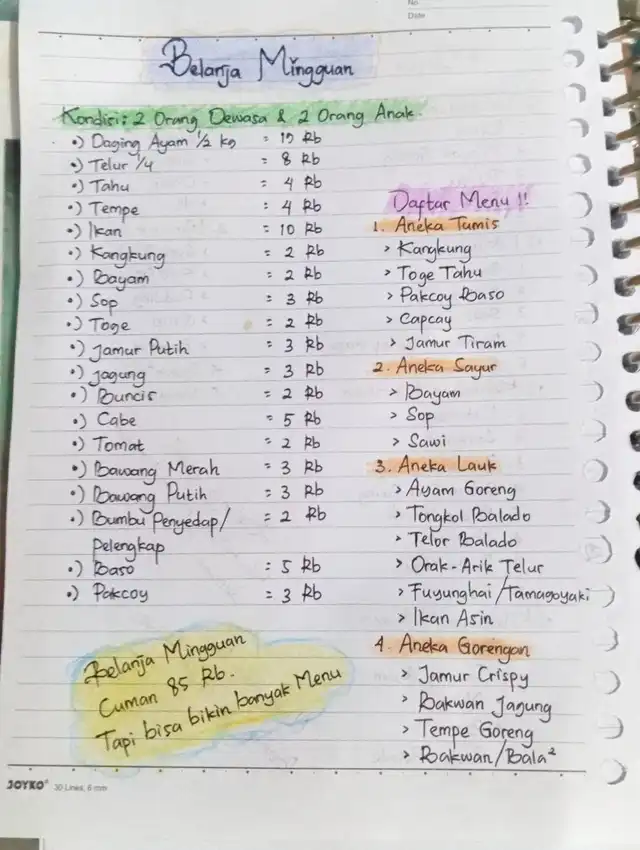 No
Date
Belanja Mingguan
Kondisi: 2 Orang Dewasa & 2 Orang Anak.
•) Daging Ayam 1/2 kg = 19 Rb
•) Telur 1/4 = 8 Rb
•) Tahu = 4 Rb
•) Tempe = 4 Rb
•) Ikan = 10 Rb
•) Kangkung = 2 Rb
•) Bayam = 2 Rb
•) Sop = 3 Rb
•) Toge = 2 Rb
•) Jamur Putih = 3 Rb
•) Jagung = 3 Rb
•) Buncis = 2 Rb
•) Cabe = 5 Rb
•) Tomat = 2 Rb
•) Bawang Merah = 3 Rb
•) Bawang Putih = 3 Rb
•) Bumbu Penyedap/ = 2 Rb
Pelengkap
•) Baso = 5 Rb
•) Pakcoy = 3 Rb
Belanja Mingguan
Cuman 85 Rb.
Tapi bisa bikin banyak Menu
Daftar Menu !!
1. Aneka Tumis
> Kangkung
> Toge Tahu
> Pakcoy Baso
> Capcay
> Jamur Tiram
2. Aneka Sayur
> Bayam
> Sop
> Sawi
3. Aneka Lauk
> Ayam Goreng
> Tongkol Balado
> Telor Balado
> Orak-Arik Telur
> Fuyunghai/Tamagoyaki
> Ikan Asin
4. Aneka Gorengan
> Jamur Crispy
> Bakwan Jagung
> Tempe Goreng
> Bakwan/Bala²
JOYKO 30 Lines, 6 mm